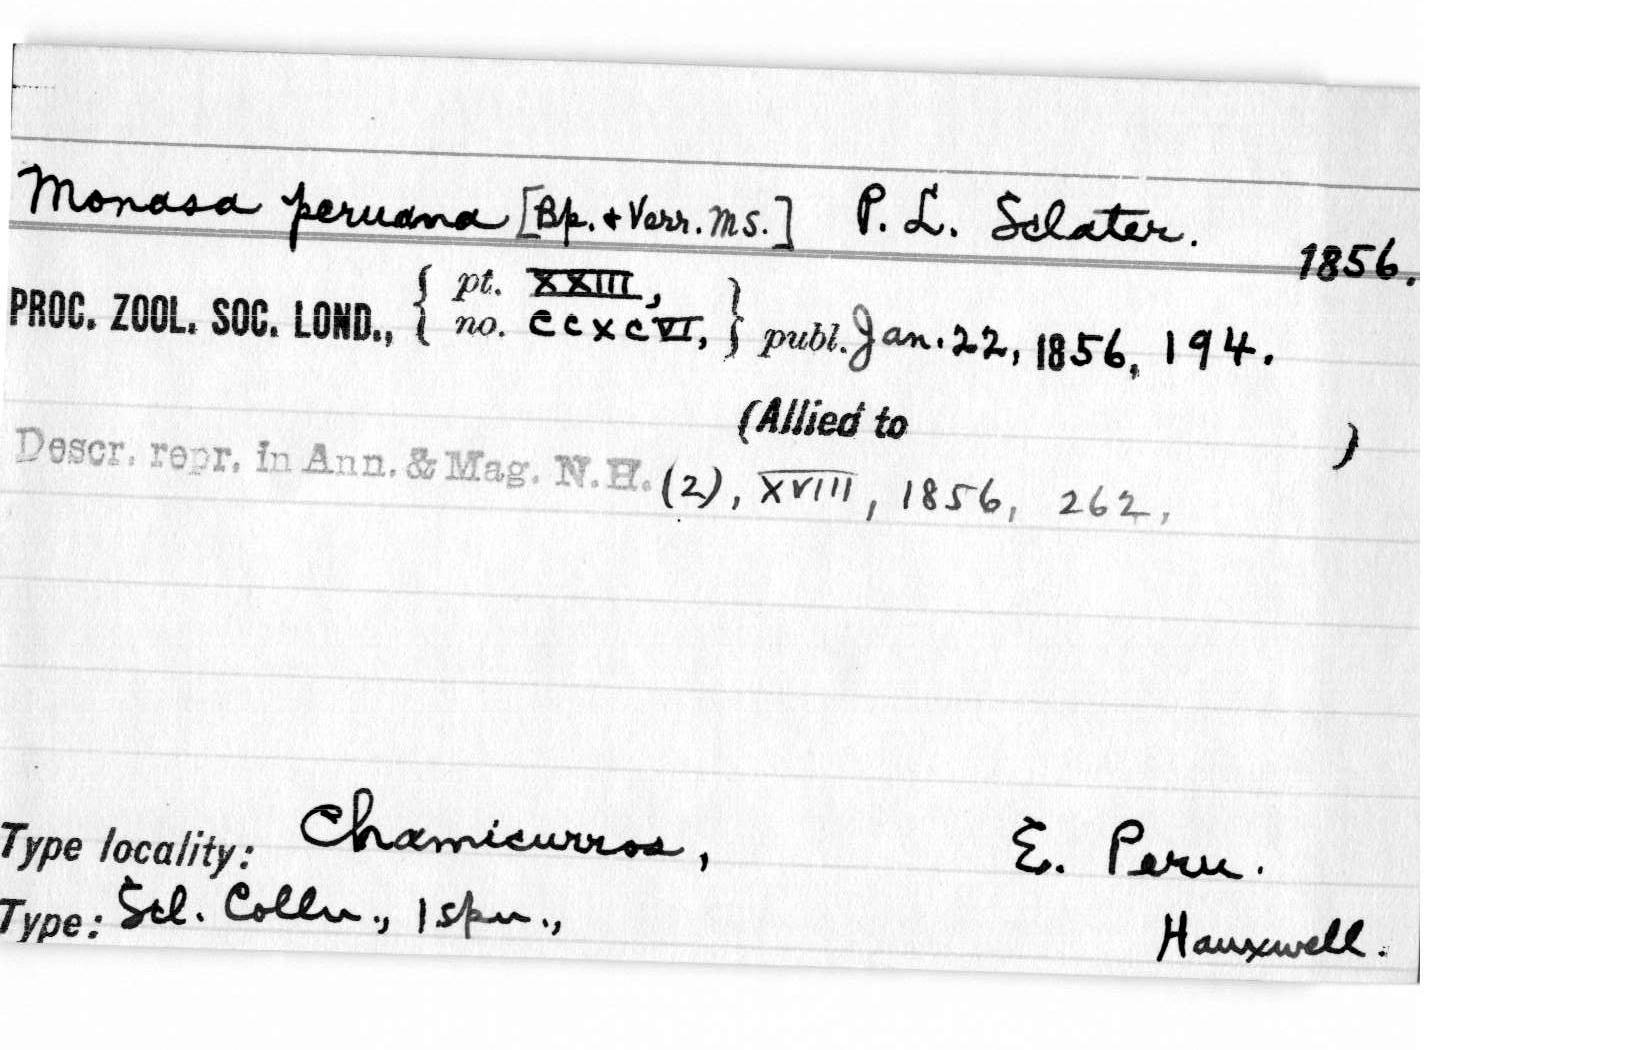 Monasa peruana [Bp. & Verr. MS.] P. L. Sclater. 1856.
PROC. ZOOL. SOC. LOND., { pt. XXIII, no. CCXCVI, } publ. Jan. 22, 1856, 194.
(Allied to )
Descr. repr. in Ann. & Mag. N.H. (2), XVIII, 1856, 262,
Type locality: Chamicurros, E. Peru.
Type: Scl. Colln., 1 spn., Hauxwell.